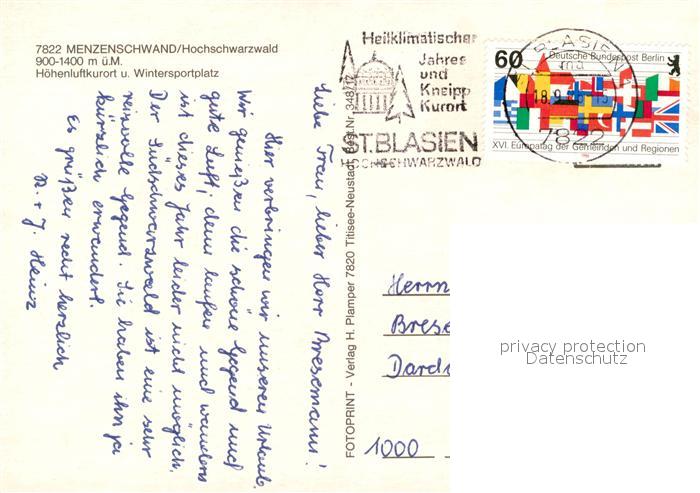 7822 MENZENSCHWAND/Hochschwarzwald
900-1400 m ü.M.
Höhenluftkurort u. Wintersportplatz
Heilklimatischer
Jahres
und
Kneipp
Kurort
ST. BLASIEN
HOCHSCHWARZWALD
ST. BLASIEN
18.9.86
7822
60
Deutsche Bundespost Berlin
XVI. Europatag der Gemeinden und Regionen
Liebe Frau, lieber Herr Bresemann!
Hier verbringen wir unseren Urlaub.
Wir genießen die schöne Gegend und
gute Luft, denn laufen und wandern
ist dieses Jahr leider nicht möglich.
Der Südschwarzwald ist eine sehr
reizvolle Gegend. Sie haben ihn ja
kürzlich erwandert.
Es grüßen recht herzlich
+ J. Heinz
FOTOPRINT - Verlag H. Plamper 7820 Titisee-Neustadt Best.Nr. 348/12
Herrn
Brese
Dard
1000
privacy protection
Datenschutz